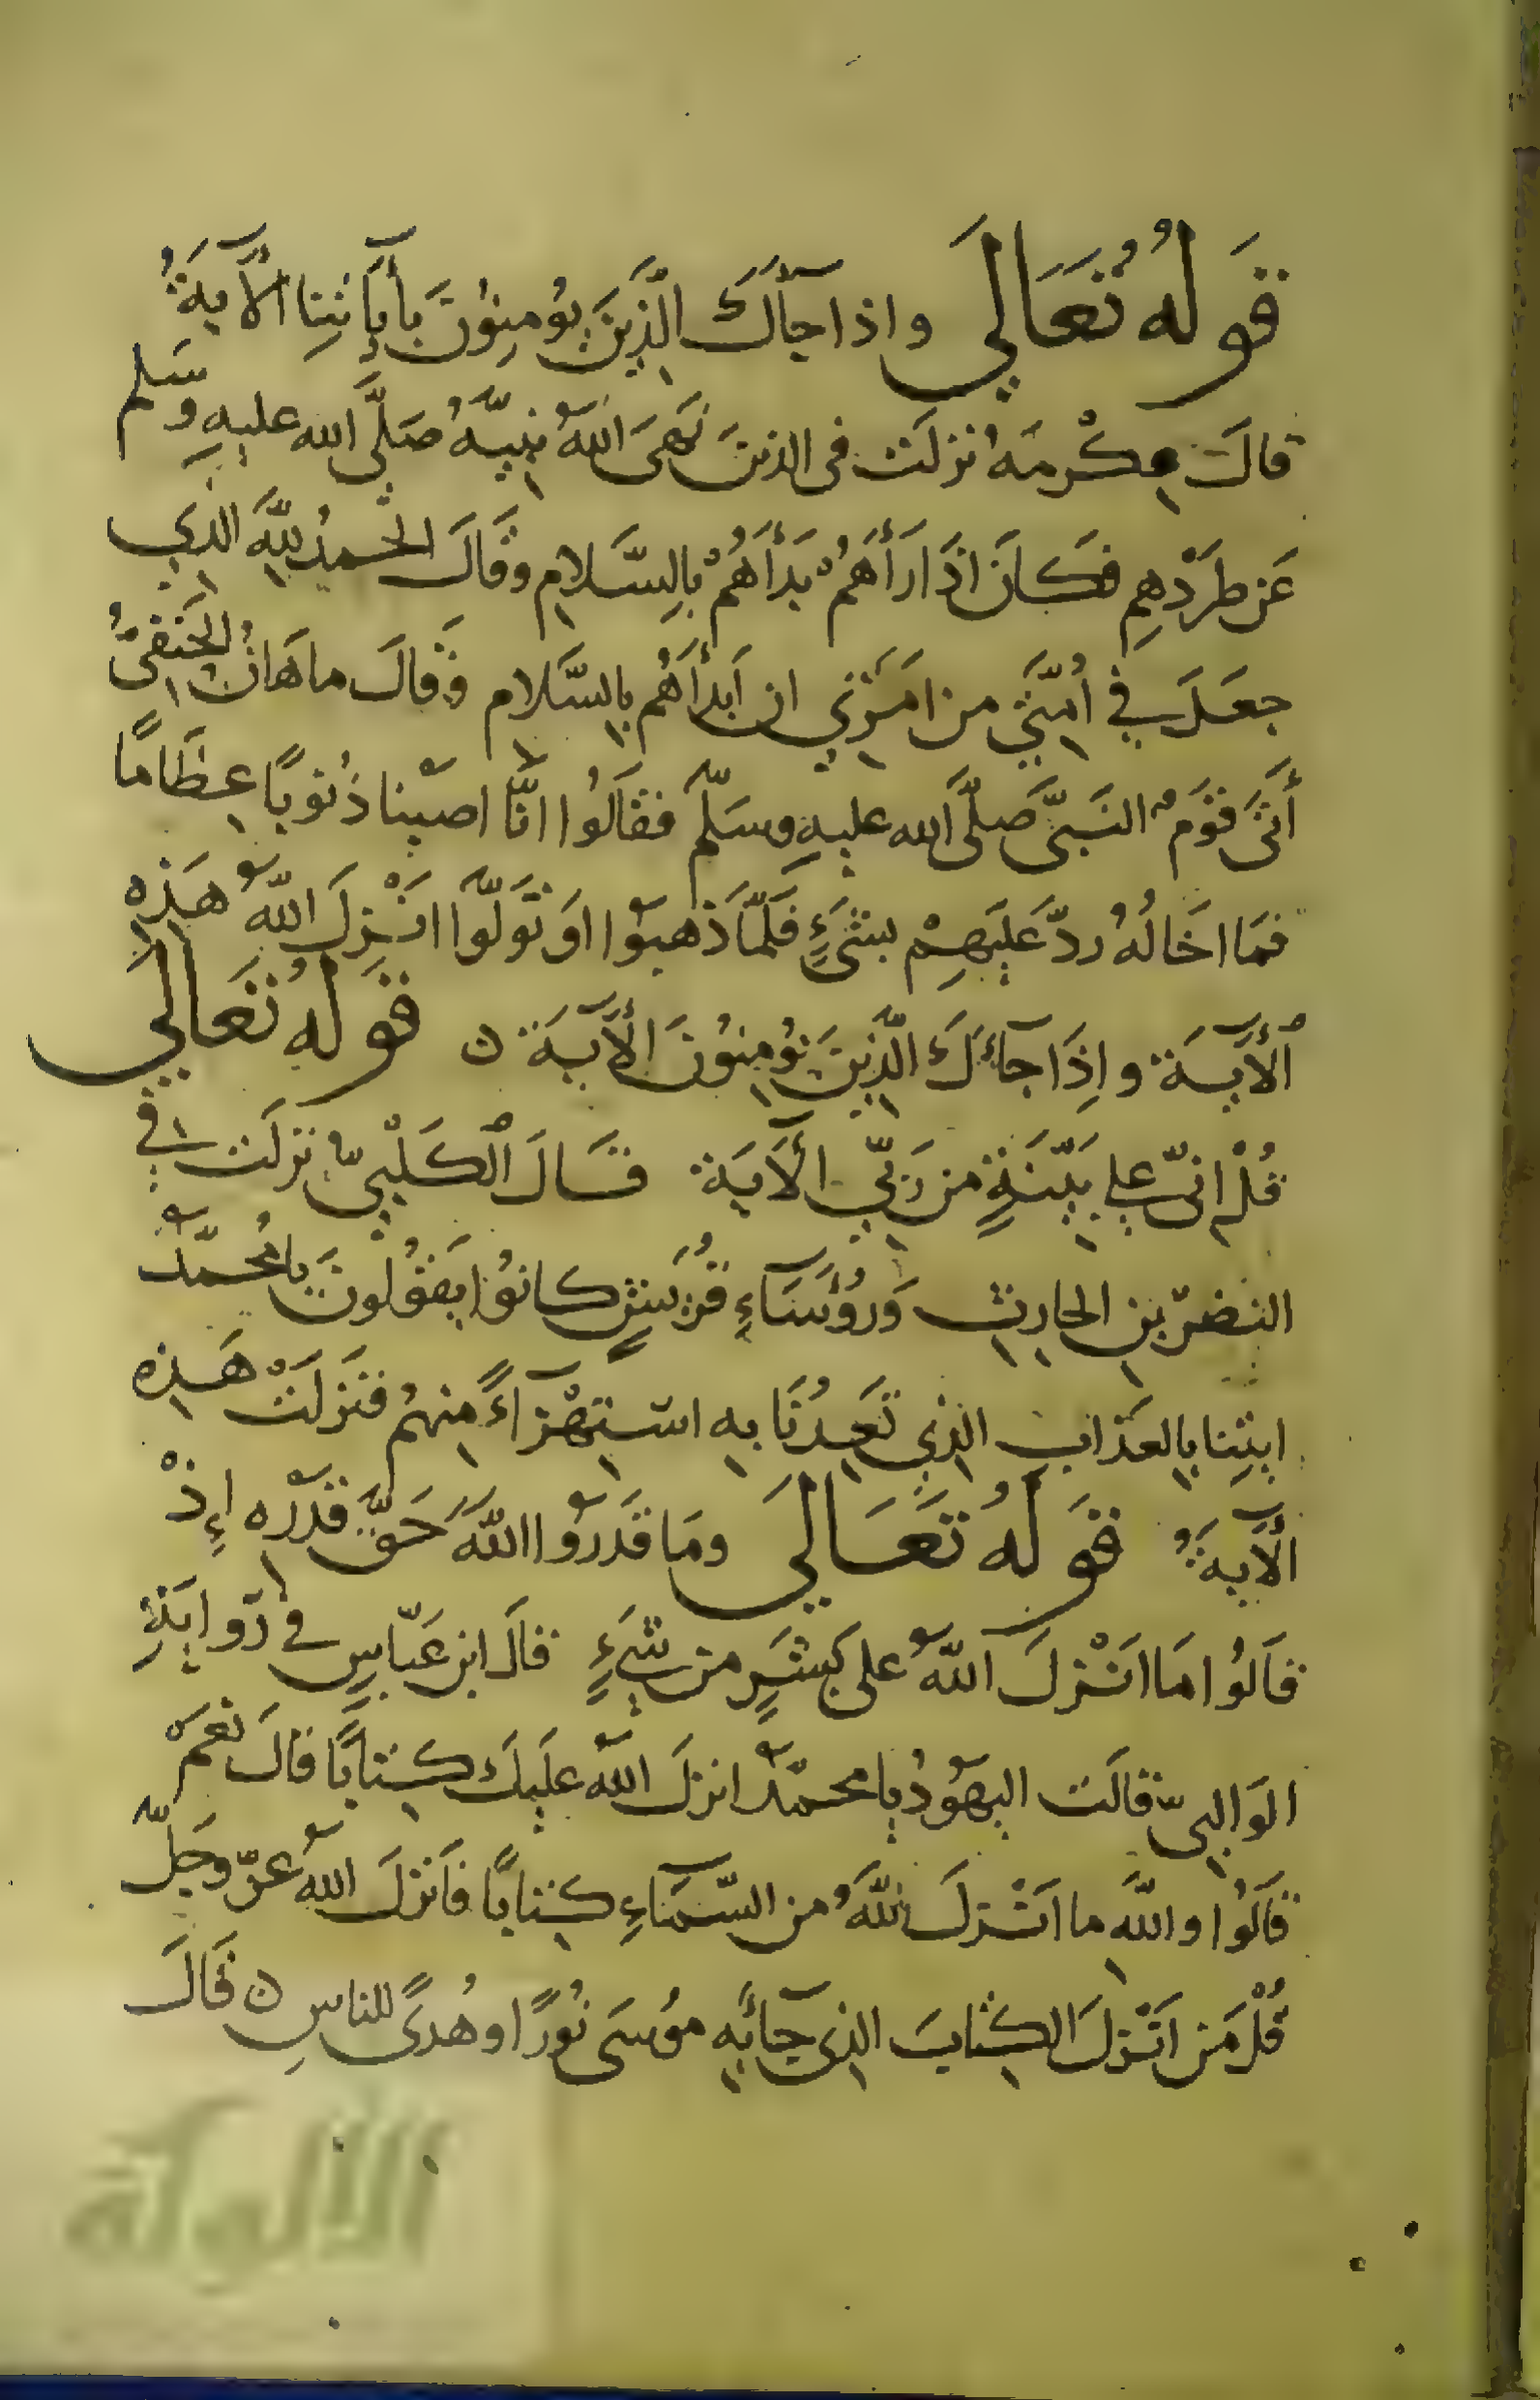 قَولُهُ تَعَالَي واذا جآأَكَ الَّذِينَ يُومِنُونَ بأيَاتِنِا الآيةُ
قالَ عِكْرمَهُ نزلَت فى الذينَ نَهىَ اللهُ نبيَّهُ صَلَّى الله عليهِ وسَلم
عَن طَرْدهِم فكَانَ اذَا رَأَهُمْ بَدَأَهُمْ بالِسَّلامِ وقَالَ الحَمدُ لِلَّهِ الذِي
جعَلَ في اُمِّتَي من اَمَرَنِي ان اَبدأَهُم بالِسَّلام وَقالَ ماهَانُ الحَنفِىُّ
أَتَى قَوَمٌ النَبىَّ صَلَّى الله عليهِ وسَلَّم فقالُوا انَّا اصَبنا ذُنوبًا عِظَامًا
فمَا اخَالُهُ ردَّ عَلَيهِمْ بشَىءٍ فَلَمَّا ذَهبوُا اوَ تَولَّوا انَزلَ اللهُ هَذِهِ
ألآيَة واِذَا جآءَكَ الَّذِينَ يُومِنُونَ الآيَة ٥ قَولهُ تَعَالَي
قُلْ انىّ علي بَيّنَةٍ من رَبّي ألآيَة قَالَ الْكَلْبيّ نزلَت في
النضرّ بنِ الحارِثِ وَرُؤسَاءِ قُرَيشٍ كانوُا يَقُولُونَ يا مُحمَّدُ
ايتِنا بِالعَذَابِ الذِي تَعِدُنَا بهِ استِهْزآءً مِنهُم فنَزلَتْ هَذِهِ
الآيةُ قَولهُ تَعَالَي ومَا قَدروُا اللهَ حَقَّ قدْرِهِ إِذْ
قَالُوا مَا اَنْزلَ اللهُ على بَشَرٍ من شَيءٍ قالَ ابن عَبّاسٍ في رَوايَةِ
الوَالِبىّ قالَت اليَهوُدُ يا محمَّدُ انزلَ اللهُ علَيكَ كِتابًا قالَ نعَمْ
قَالُوا واللهِ ما انَزلَ اللهُ من السَّمَاءِ كِتابًا فاَنزلَ اللهُ عزّ وجَلَّ
قُلْ مَن اَنْزلَ الكِتابَ الذِى جآءَ بهِ موُسَى نُورًا وهُدىً للناسِ ٥ قَالَ
الألوكة